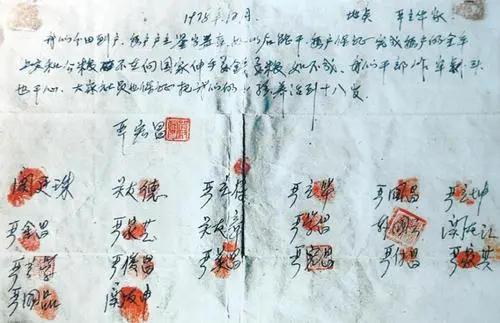 1978年12月 地点 严立华家
我们分田到户,每户户主签字盖章,如以后能干,每户保证完成每户的全年
上交和公粮。不在向国家伸手要钱要粮。如不成,我们干部作牢刹头
也干心,大家社员也保证把我们的小孩养活到十八岁
严宏昌
关廷珠 关友德 严立符 严立华 严国昌 严立坤
严金昌 严家芝 关友章 严学昌 韩国云 关友江
严立学 严俊昌 严美昌 严宏昌 严付昌 严家其
严国品 关友申